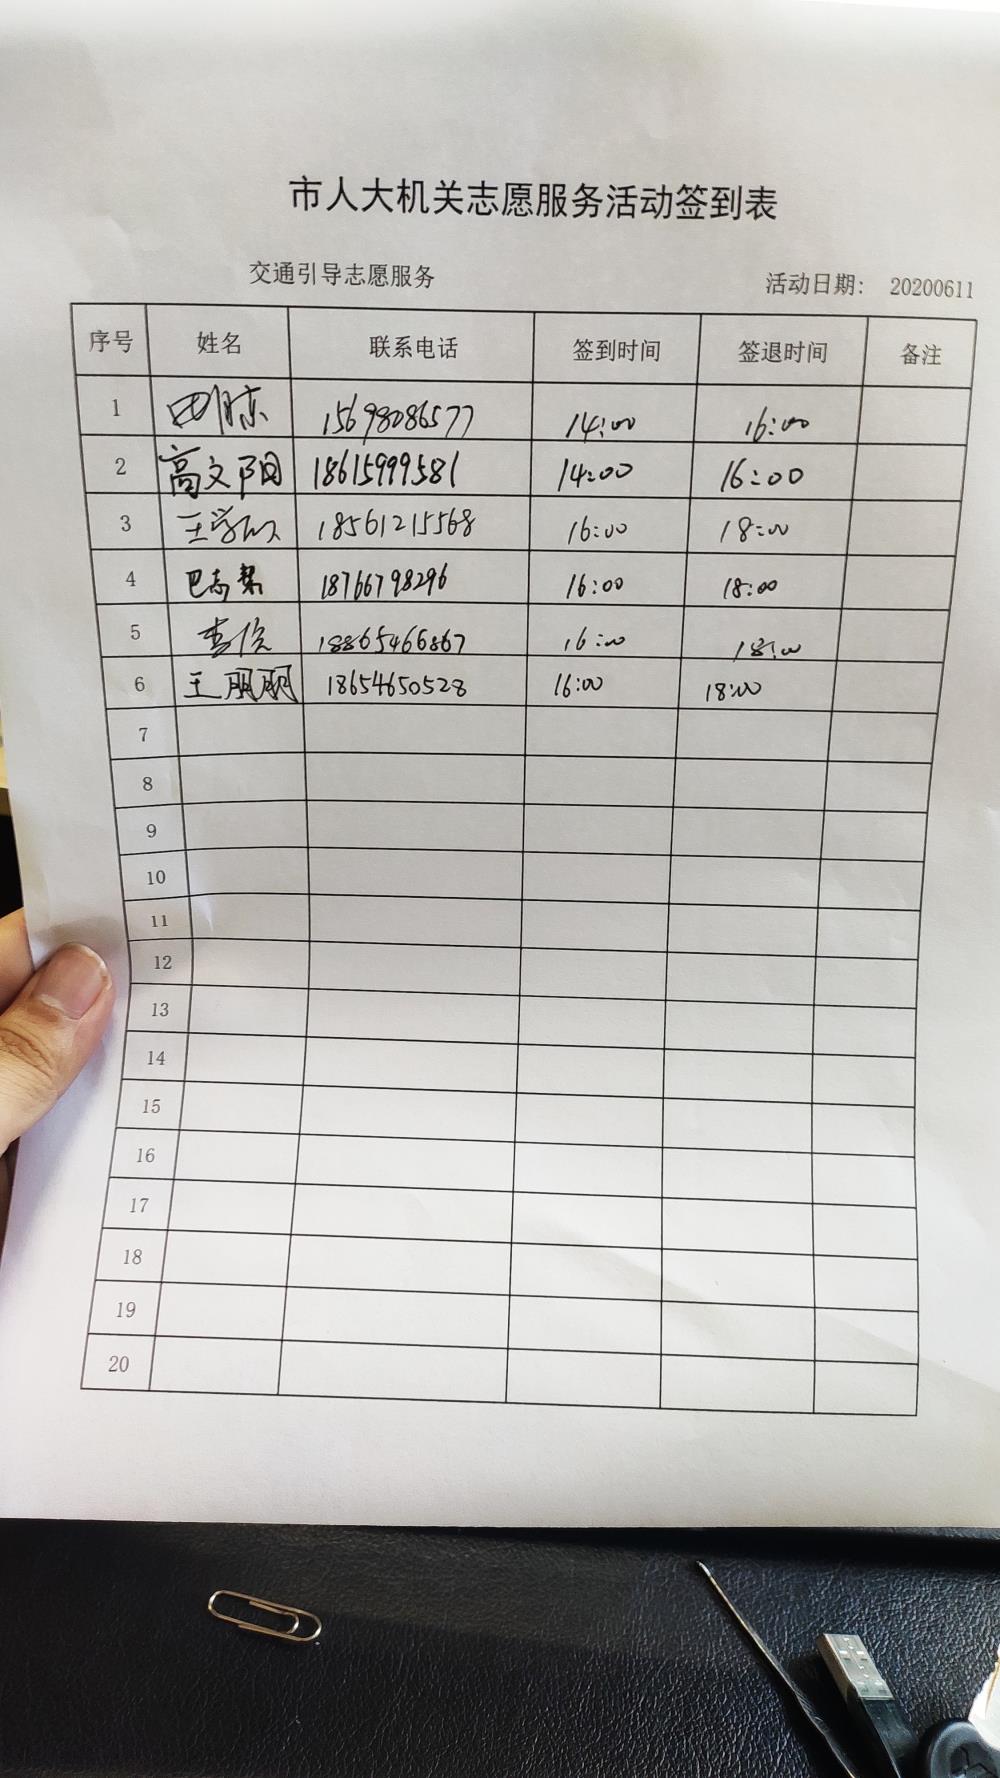 市人大机关志愿服务活动签到表
交通引导志愿服务 活动日期: 20200611
序号 姓名 联系电话 签到时间 签退时间 备注
1 15698086577 14:00 16:00
2 高文阳 18615999581 14:00 16:00
3 王学 18561215568 16:00 18:00
4 巴志 18766798296 16:00 18:00
5 李 18865466867 16:00 18:00
6 王丽丽 18654650528 16:00 18:00
7
8
9
10
11
12
13
14
15
16
17
18
19
20